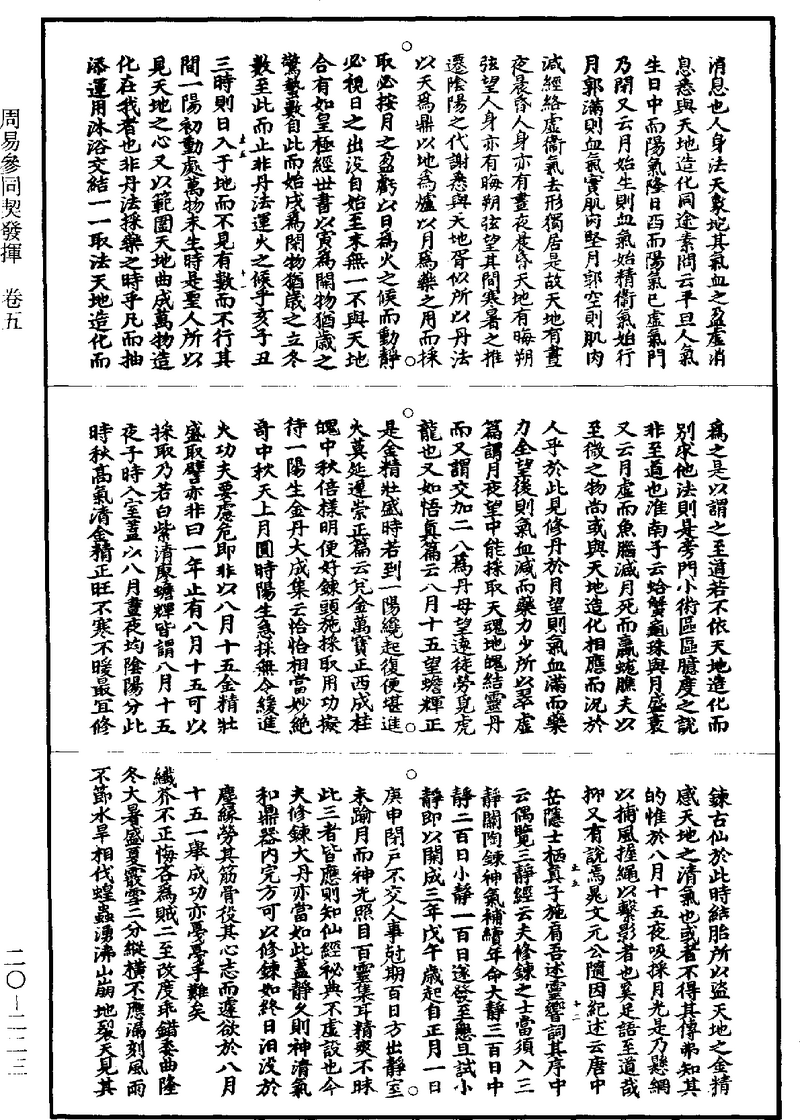 周易參同契發揮　卷五
消息也人身法天象地其氣血之盈虛消
息悉與天地造化同途素問云平旦人氣
生日中而陽氣隆日西而陽氣已虛氣門
乃閉又云月始生則血氣始精衛氣始行
月郭滿則血氣實肌肉堅月郭空則肌肉
減經絡虛衛氣去形獨居是故天地有晝
夜晨昏人身亦有晝夜晨昏天地有晦朔
弦望人身亦有晦朔弦望其間寒暑之推
遷陰陽之代謝悉與天地胥似所以丹法
以天為鼎以地為爐以月為藥之用而採
取必按月之盈虧以日為火之候而動靜
必視日之出沒自始至末無一不與天地
合有如皇極經世書以寅為開物猶歲之
驚蟄數自此而始戌為閉物猶歲之立冬
數至此而止非丹法運火之候乎亥子丑
三時則日入于地而不見有數而不行其
間一陽初動處萬物未生時是聖人所以
見天地之心又以範圍天地曲成萬物造
化在我者也非丹法採藥之時乎凡而抽
添運用沐浴交結一一取法天地造化而
為之是以謂之至道若不依天地造化而
別求他法則是旁門小術區區臆度之說
非至道也淮南子云蛤蟹龜珠與月盛衰
又云月虛而魚腦減月死而蠃蛖膲夫以
至微之物尚或與天地造化相應而況於
人乎於此見修丹於月望則氣血滿而藥
力全望後則氣血減而藥力少所以翠虛
篇謂月夜望中能採取天魂地魄結靈丹
而又謂交加二八為丹母望遠徒勞覓虎
龍也又如悟真篇云八月十五望蟾輝正
是金精壯盛時若到一陽纔起復便堪進
火莫延遲崇正篇云兌金萬寶正西成桂
魄中秋倍樣明便好鍊頭施採取用功擬
待一陽生金丹大成集云恰恰相當妙絕
奇中秋天上月圓時陽生急採無令緩進
火功夫要慮危即非以八月十五金精壯
盛取譬亦非曰一年止有八月十五可以
採取乃若白紫清廖蟾輝皆謂八月十五
夜子時入室蓋以八月晝夜均陰陽分此
時秋高氣清金精正旺不寒不暖最宜修
鍊古仙於此時結胎所以盜天地之金精
感天地之清氣也或者不得其傳弗知其
的惟於八月十五夜吸採月光是乃懸網
以捕風捶繩以繫影者也奚足語至道哉
抑又有說焉晁文元公隨因紀述云唐中
岳隱士栖真子施肩吾述靈響詞其序中
云偶覽三靜經云夫修鍊之士當須入三
靜關陶鍊神氣補續年命大靜三百日中
靜二百日小靜一百日遂發至懇且試小
靜即以開成三年戊午歲起自正月一日
庚申閉戶不交人事尅期百日方出靜室
未踰月而神光照目百靈集耳精爽不昧
此三者皆應則知仙經秘典不虛設也今
夫修鍊大丹亦當如此蓋靜久則神清氣
和鼎器內完方可以修鍊如終日汨汲於
塵緣勞其筋骨役其心志而遽欲於八月
十五一舉成功亦戛戛乎難矣
纖芥不正悔吝為賊二至改度乖錯委曲隆
冬大暑盛夏霰雪二分縱橫不應漏刻風雨
不節水旱相伐蝗蟲湧沸山崩地裂天見其
二〇—二二三